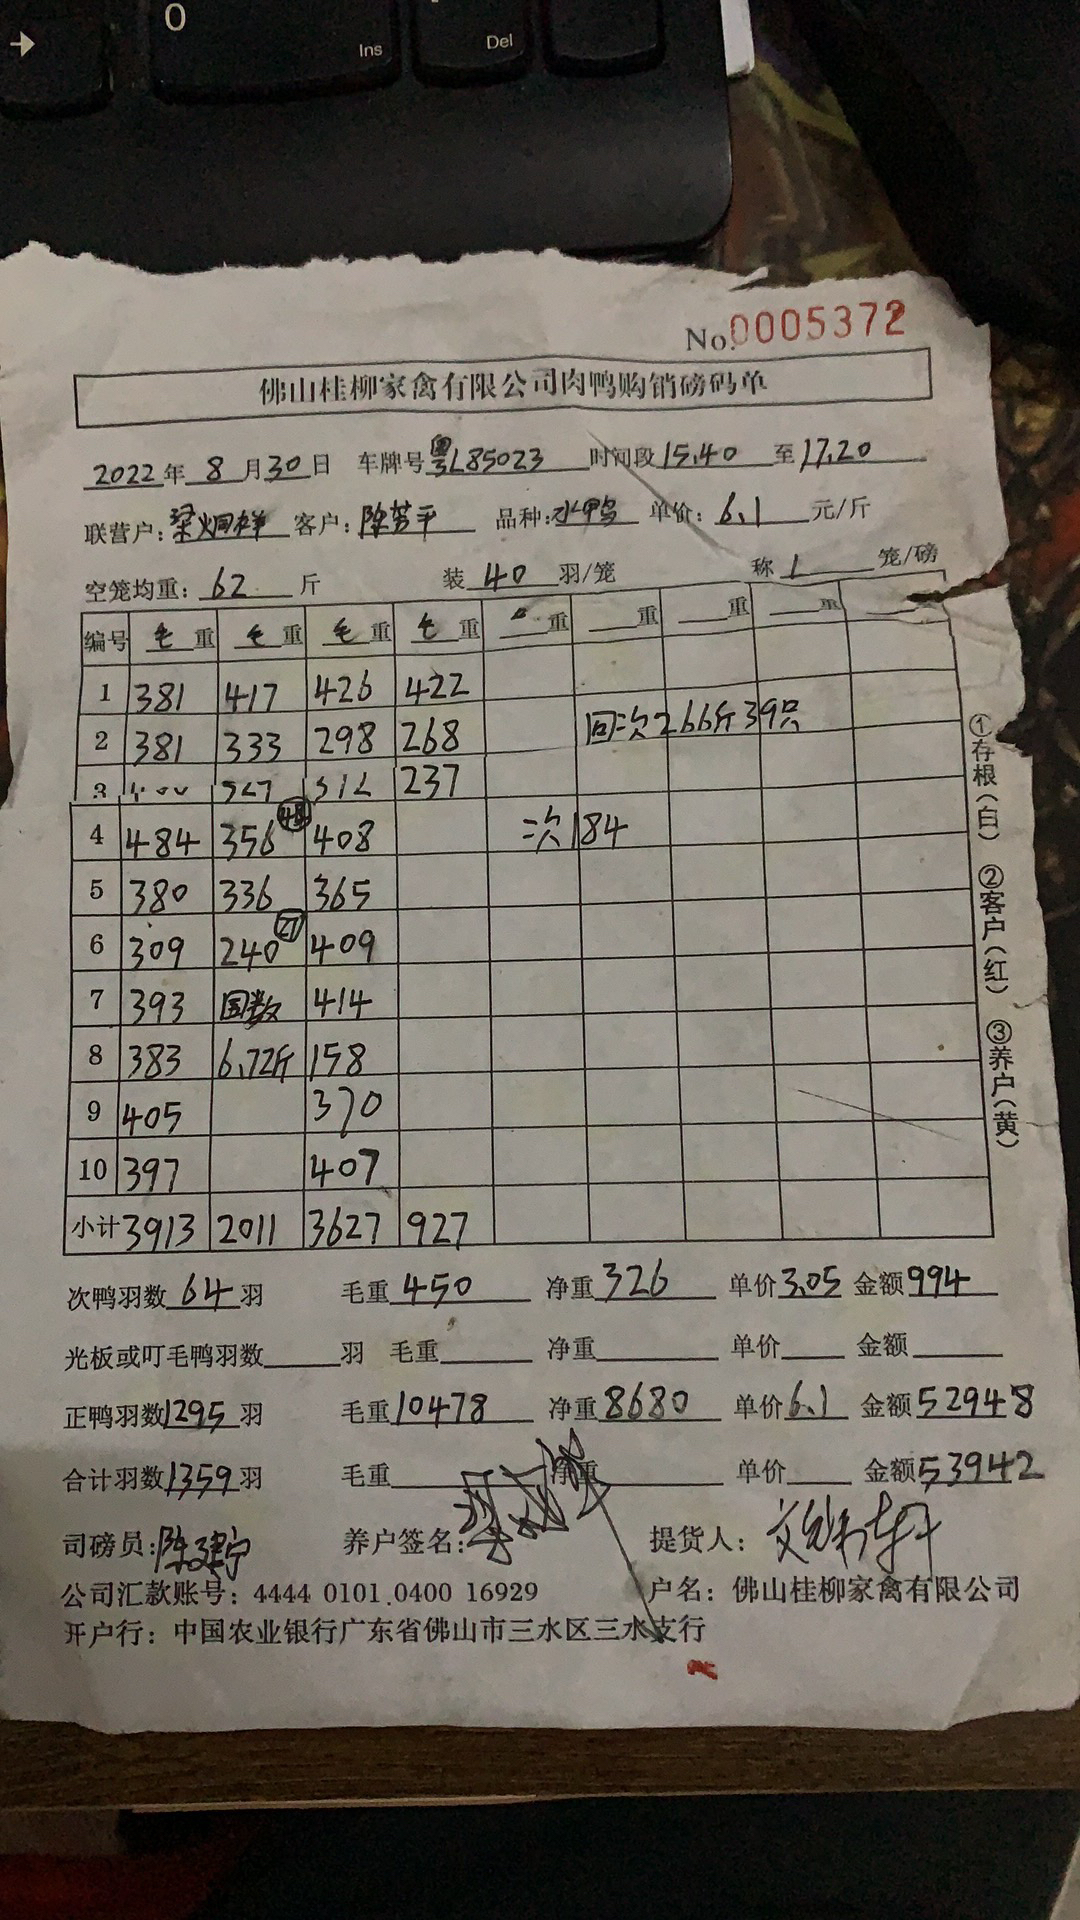 0
Ins
Del
No.0005372
佛山桂柳家禽有限公司肉鸭购销磅码单
2022年 8 月 30 日 车牌号 粤L85023 时间段 15.40 至 17.20
联营户: 梁炯祥 客户: 陈芳平 品种: 水鸭 单价: 6.1 元/斤
空笼均重: 62 斤 装 40 羽/笼 称 1 笼/磅
编号 毛重 毛重 毛重 毛重 重 重 重 重
1 381 417 426 422
2 381 333 298 268 回次266斤39只
3 237
4 484 356 48 408 二次184
5 380 336 365
6 309 240 27 409
7 393 国数 414
8 383 6.72斤 158
9 405 370
10 397 407
小计 3913 2011 3627 927
次鸭羽数 64 羽 毛重 450 净重 326 单价 3.05 金额 994
光板或叮毛鸭羽数 羽 毛重 净重 单价 金额
正鸭羽数 1295 羽 毛重 10478 净重 8680 单价 6.1 金额 52948
合计羽数 1359 羽 毛重 净重 单价 金额 53942
司磅员: 陈建宁 养户签名: 提货人:
公司汇款账号: 4444 0101 0400 16929 户名: 佛山桂柳家禽有限公司
开户行: 中国农业银行广东省佛山市三水区三水支行
①存根(白) ②客户(红) ③养户(黄)